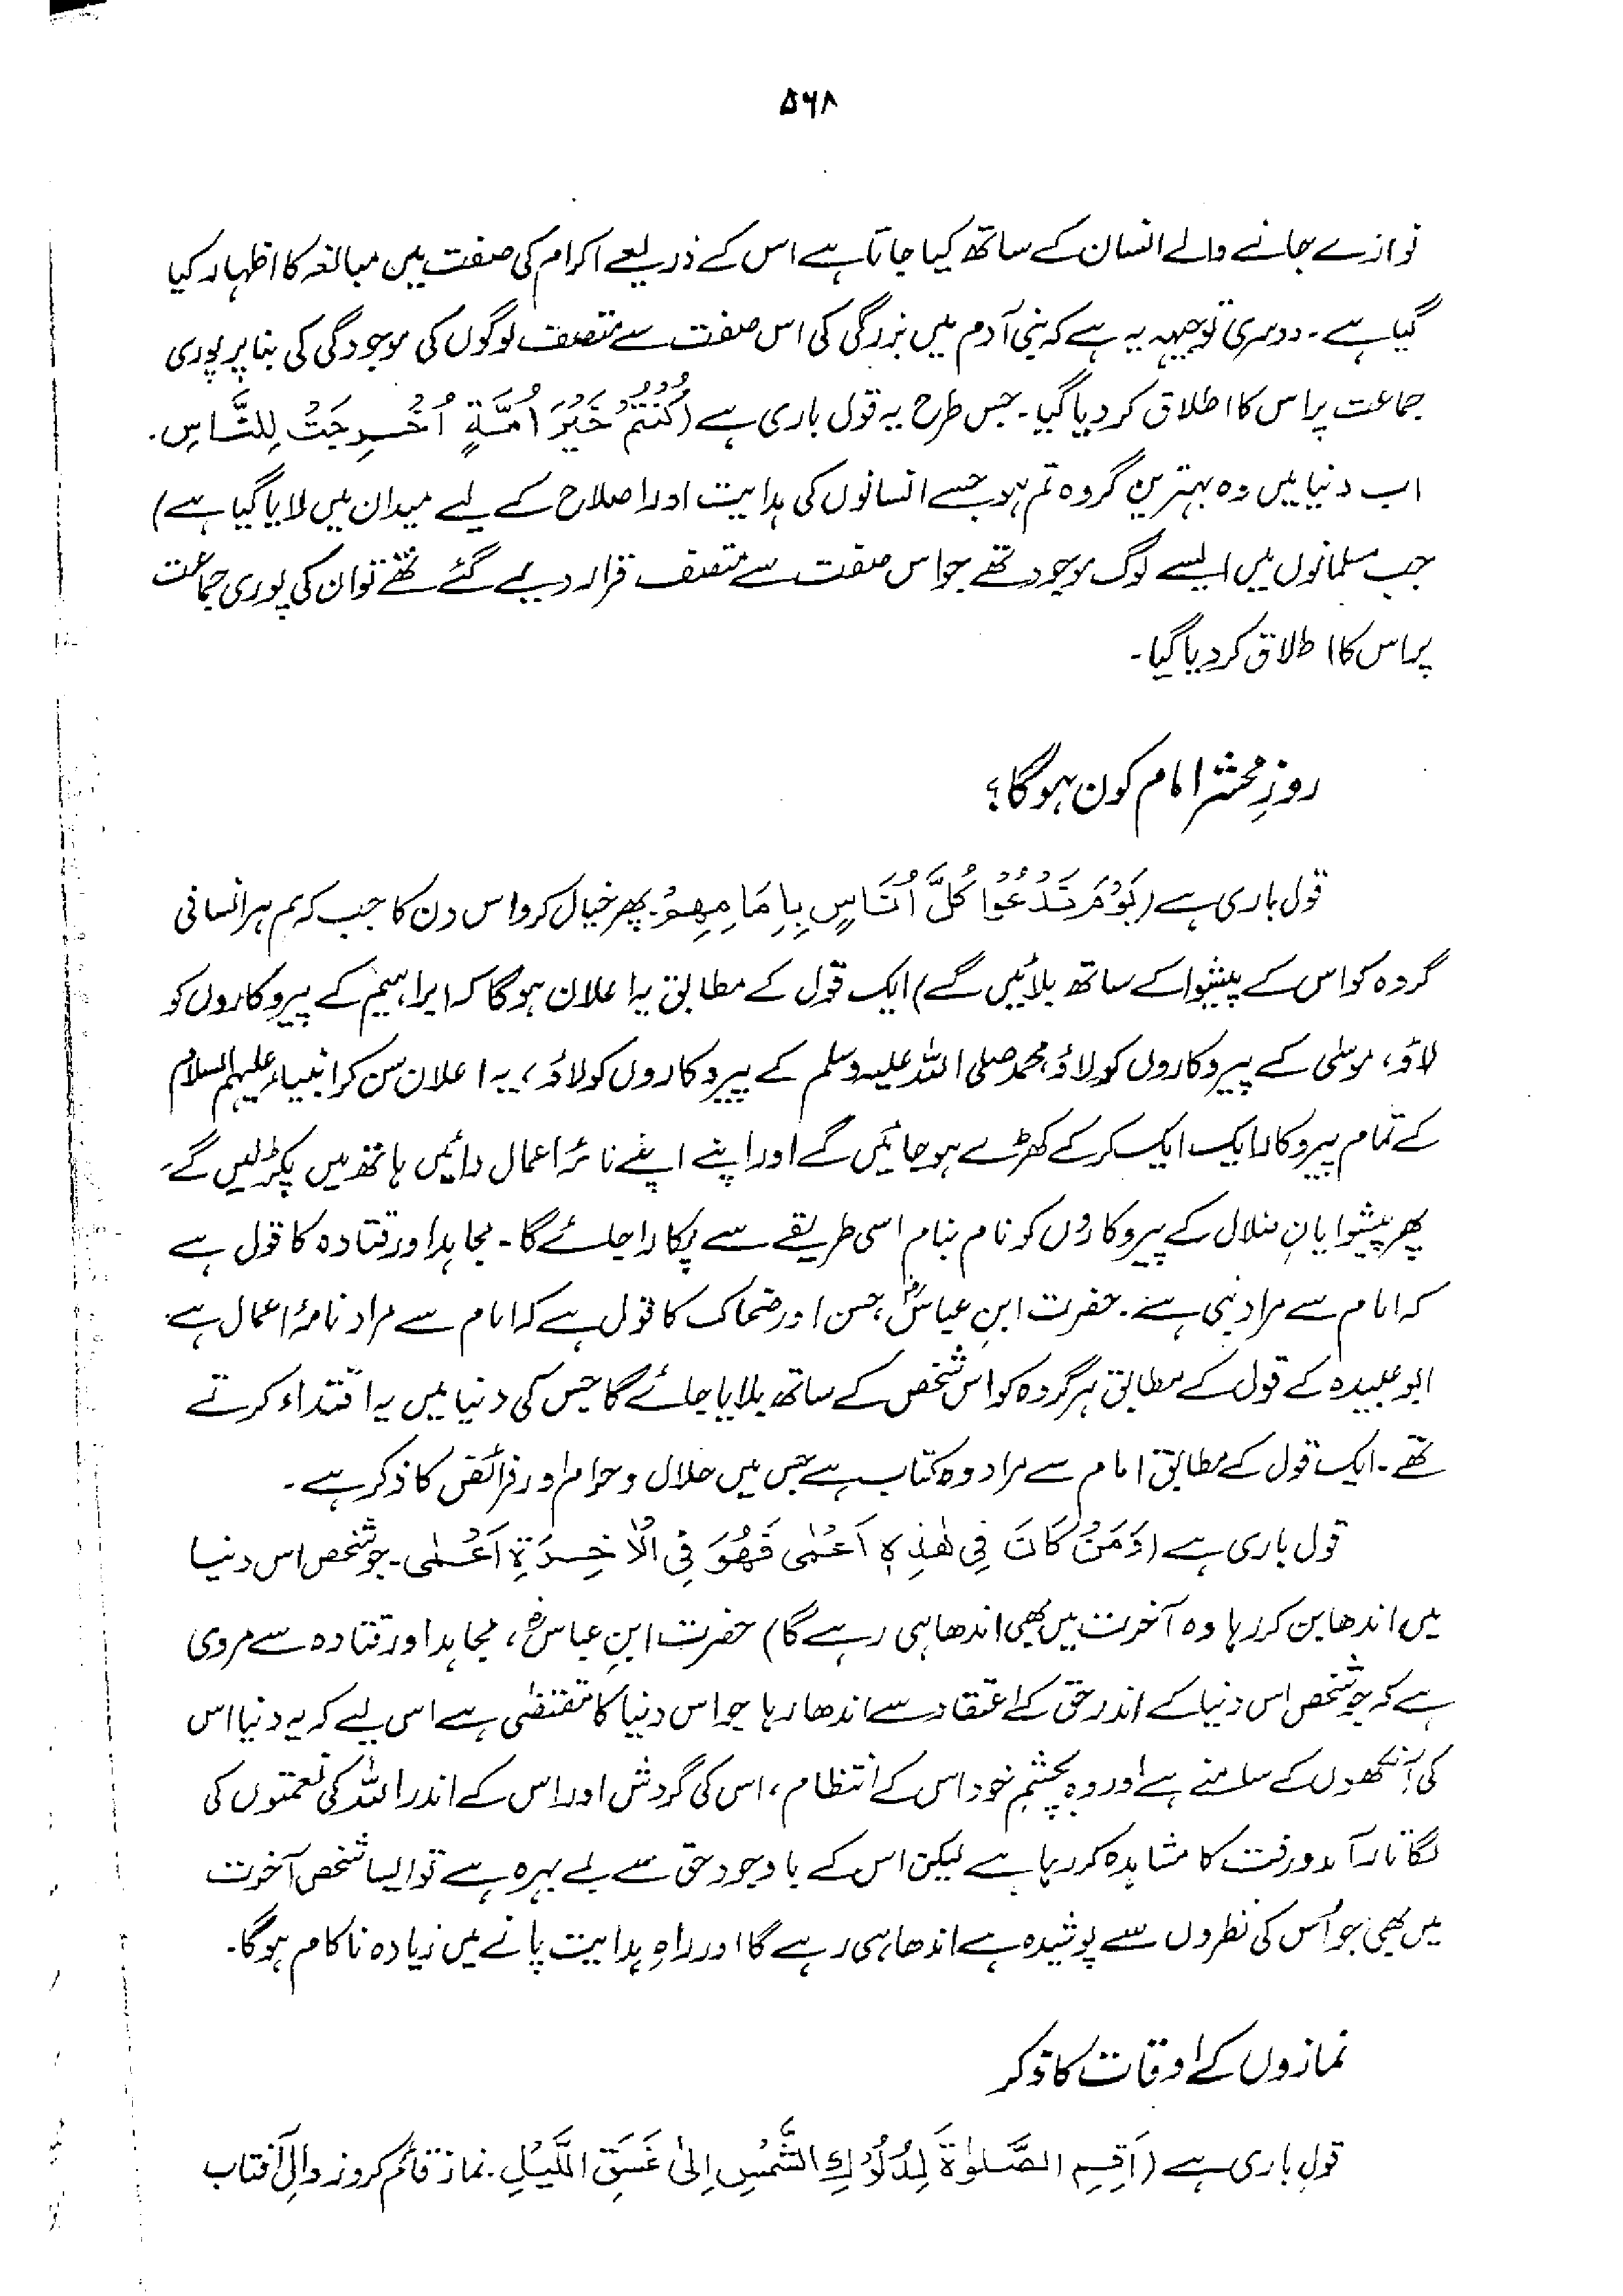 ۵۶۸
نوازے جانے والے انسان کے ساتھ کیا جاتا ہے اس کے ذریعے اکرام کی صفت میں مبالغہ کا اظہار کیا
گیا ہے۔ دوسری توجیہہ یہ ہے کہ بنی آدم میں بزرگی کی اس صفت سے متصف لوگوں کی موجودگی کی بنا پر پوری
جماعت پر اس کا اطلاق کر دیا گیا۔ جس طرح یہ قول باری ہے (کُنْتُمْ خَیْرَ اُمَّۃٍ اُخْرِجَتْ لِلنَّاسِ۔
اب دنیا میں وہ بہترین گروہ تم ہو جسے انسانوں کی ہدایت اور اصلاح کے لیے میدان میں لایا گیا ہے)
جب مسلمانوں میں ایسے لوگ موجود تھے جو اس صفت سے متصف قرار دیے گئے تھے تو ان کی پوری جماعت
پر اس کا اطلاق کر دیا گیا۔
روزِ محشر امام کون ہوگا؟
قول باری ہے (یَوْمَ نَدْعُوْا کُلَّ اُنَاسٍ بِاِمَامِهِمْ۔ پھر خیال کرو اس دن کا جب کہ ہم ہر انسانی
گروہ کو اس کے پیشوا کے ساتھ بلائیں گے) ایک قول کے مطابق یہ اعلان ہوگا کہ ابراہیمؑ کے پیروکاروں کو
لاؤ، موسیٰ کے پیروکاروں کو لاؤ، محمد صلی اللہ علیہ وسلم کے پیروکاروں کو لاؤ، یہ اعلان سن کر انبیاء علیہم السلام
کے تمام پیروکار ایک ایک کر کے کھڑے ہو جائیں گے اور اپنے اپنے نامۂ اعمال دائیں ہاتھ میں پکڑ لیں گے۔
پھر پیشوایانِ ضلال کے پیروکاروں کو نام بنام اسی طریقے سے پکارا جائے گا۔ مجاہد اور قتادہ کا قول ہے
کہ امام سے مراد نبی ہے۔ حضرت ابنِ عباسؓ، حسن اور ضحاک کا قول ہے کہ امام سے مراد نامۂ اعمال ہے۔
ابو عبیدہ کے قول کے مطابق ہر گروہ کو اس شخص کے ساتھ بلایا جائے گا جس کی دنیا میں یہ اقتداء کرتے
تھے۔ ایک قول کے مطابق امام سے مراد وہ کتاب ہے جس میں حلال و حرام اور فرائض کا ذکر ہے۔
قول باری ہے (وَمَنْ کَانَ فِیْ هٰذِہٖ اَعْمٰی فَهُوَ فِی الْاٰخِرَۃِ اَعْمٰی۔ جو شخص اس دنیا
میں اندھا بن کر رہا وہ آخرت میں بھی اندھا ہی رہے گا) حضرت ابنِ عباسؓ، مجاہد اور قتادہ سے مروی
ہے کہ جو شخص اس دنیا کے اندر حق کے اعتقاد سے اندھا رہا جو اس دنیا کا مقتضیٰ ہے اس لیے کہ یہ دنیا اس
کی آنکھوں کے سامنے ہے اور وہ بچشمِ خود اس کے انتظام، اس کی گردش اور اس کے اندر اللہ کی نعمتوں کی
لگاتار آمدورفت کا مشاہدہ کر رہا ہے لیکن اس کے باوجود حق سے بے بہرہ ہے تو ایسا شخص آخرت
میں بھی جو اُس کی نظروں سے پوشیدہ ہے اندھا ہی رہے گا اور راہِ ہدایت پانے میں زیادہ ناکام ہوگا۔
نمازوں کے اوقات کا ذکر
قول باری ہے (اَقِمِ الصَّلٰوۃَ لِدُلُوْكِ الشَّمْسِ اِلٰی غَسَقِ اللَّیْلِ۔ نماز قائم کرو زوالِ آفتاب